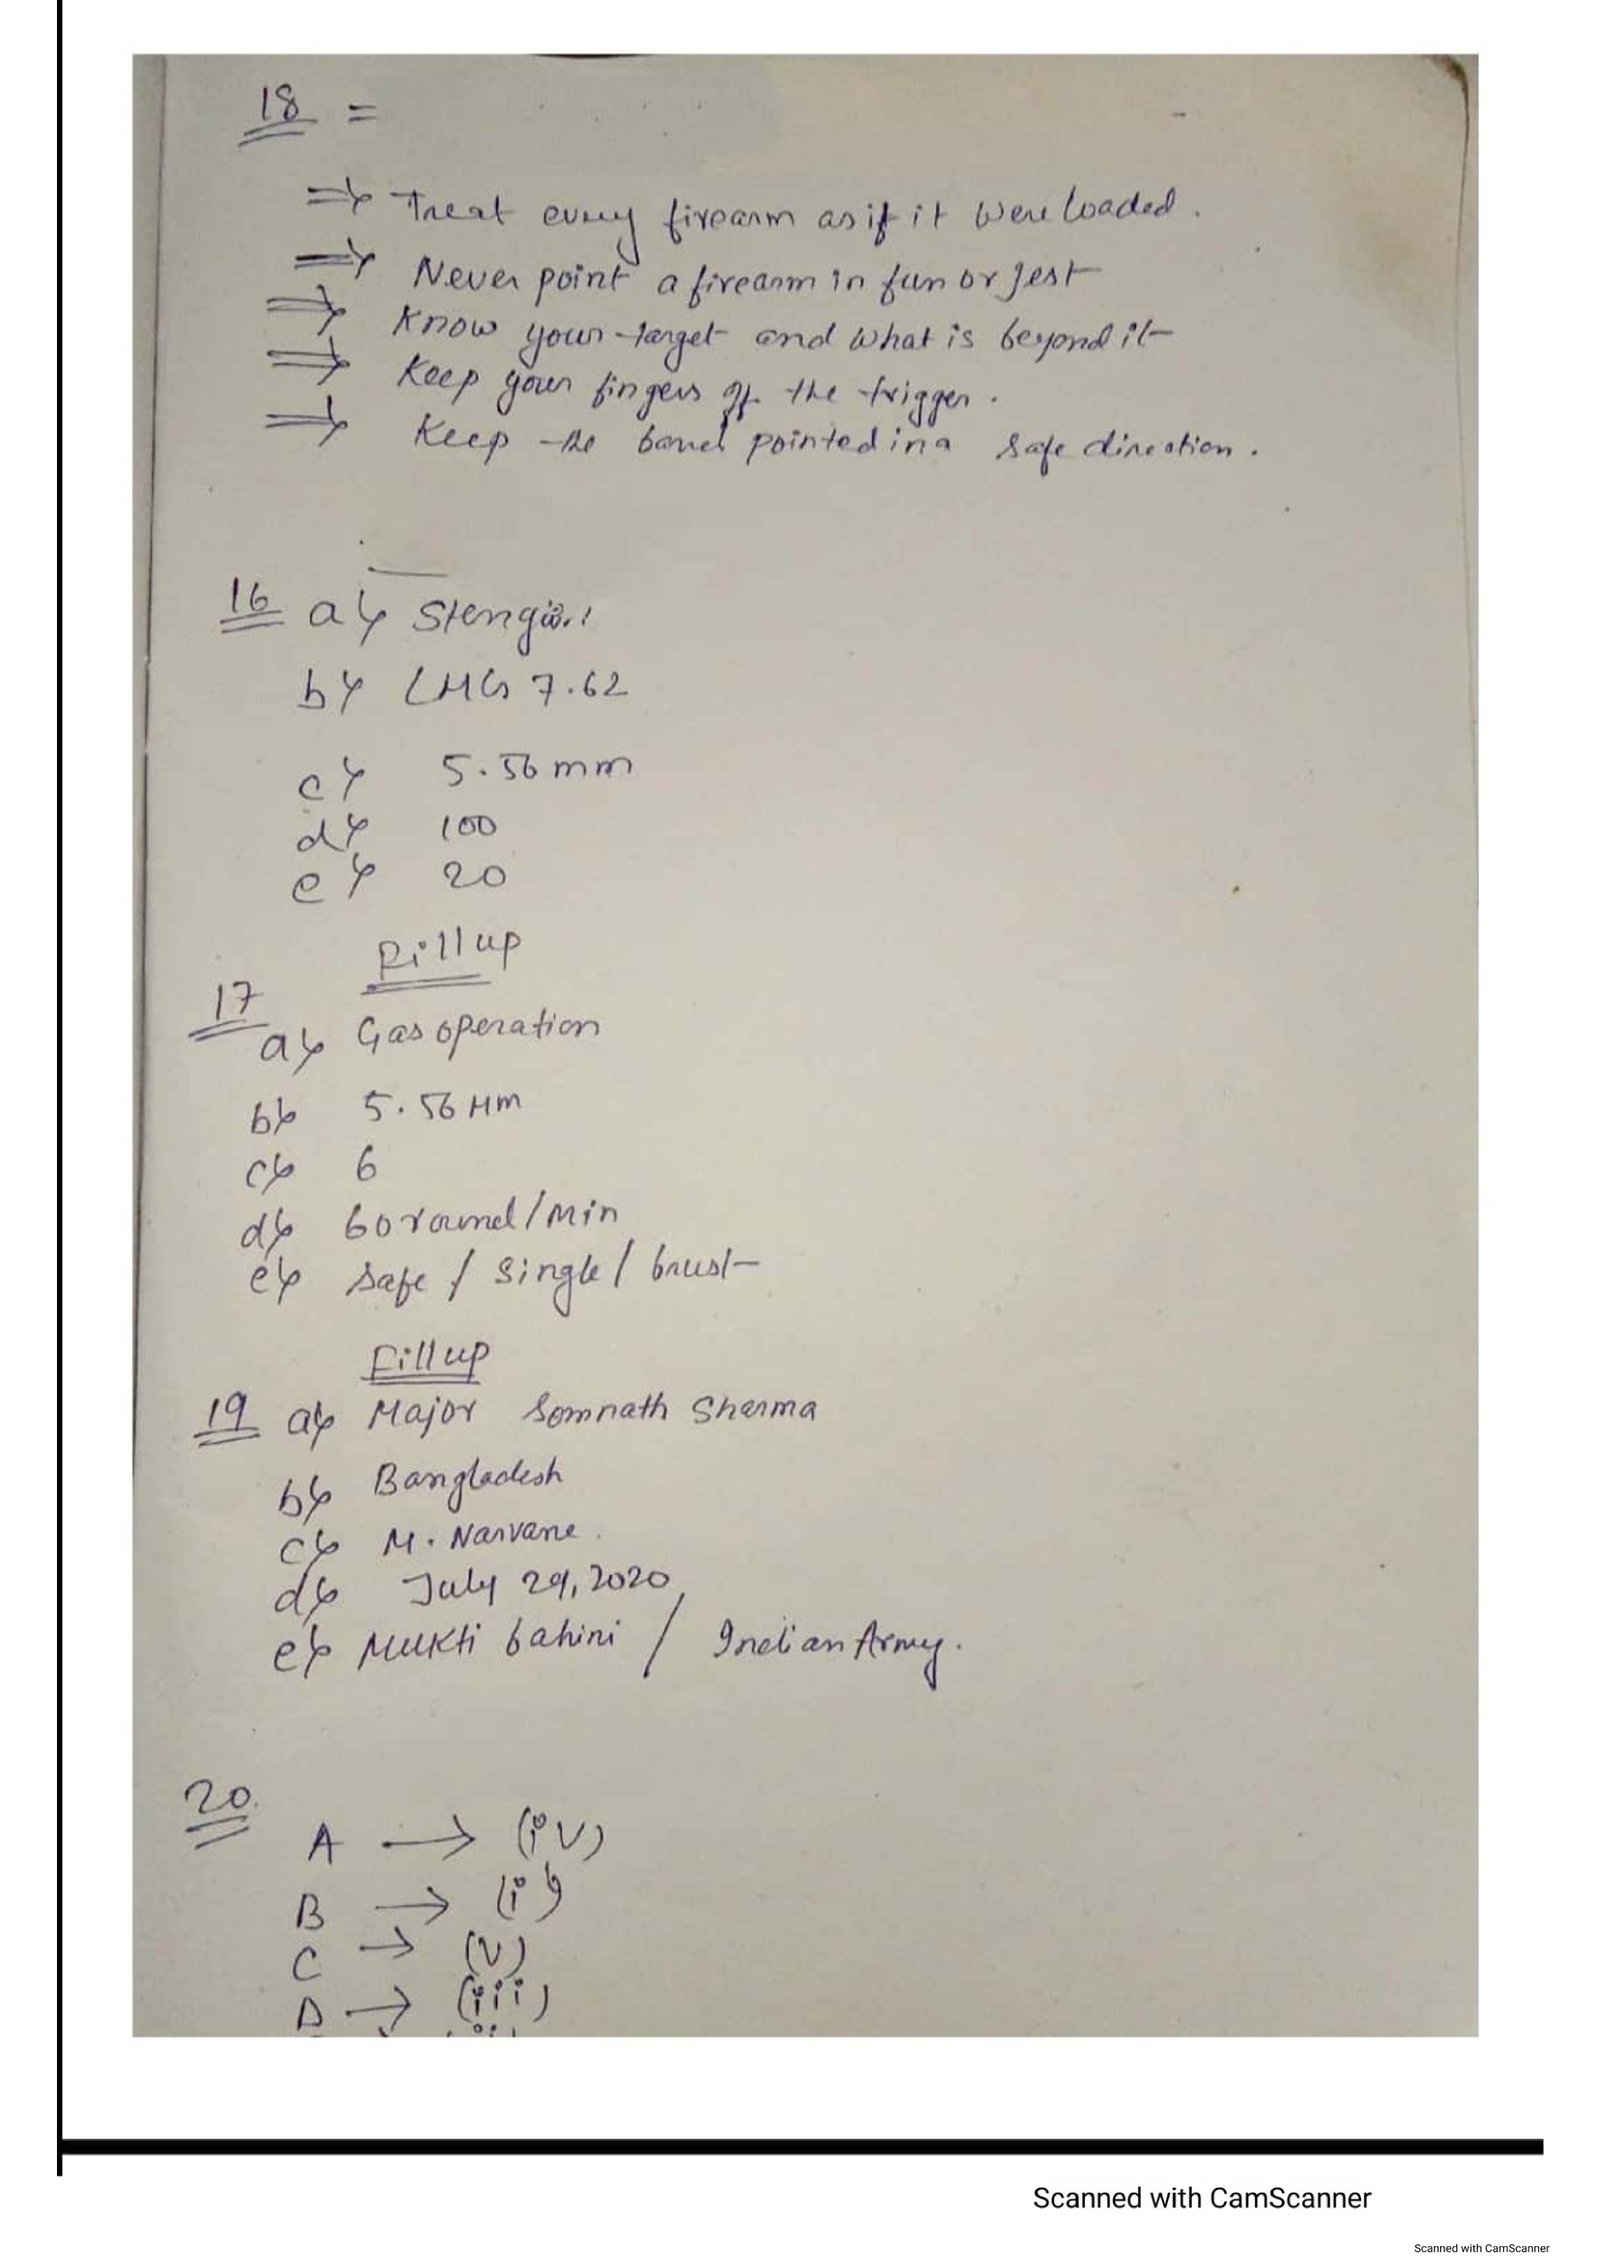 18 =
⇒ Treat every firearm as if it were loaded.
⇒ Never point a firearm in fun or Jest
⇒ Know your target and what is beyond it
⇒ Keep your fingers off the trigger.
⇒ Keep the barrel pointed in a safe direction.
16 a) Stengun
b) LMG 7.62
c) 5.56 mm
d) 100
e) 20
Fill up
17
a) Gas operation
b) 5.56 Mm
c) 6
d) 60 round/Min
e) safe / single / brust
Fill up
19 a) Major Somnath Sharma
b) Bangladesh
c) M. Narvane.
d) July 29, 2020
e) Mukti bahini / Indian Army.
20.
A → (iv)
B → (i)
C → (v)
D → (iii)
Scanned with CamScanner
Scanned with CamScanner